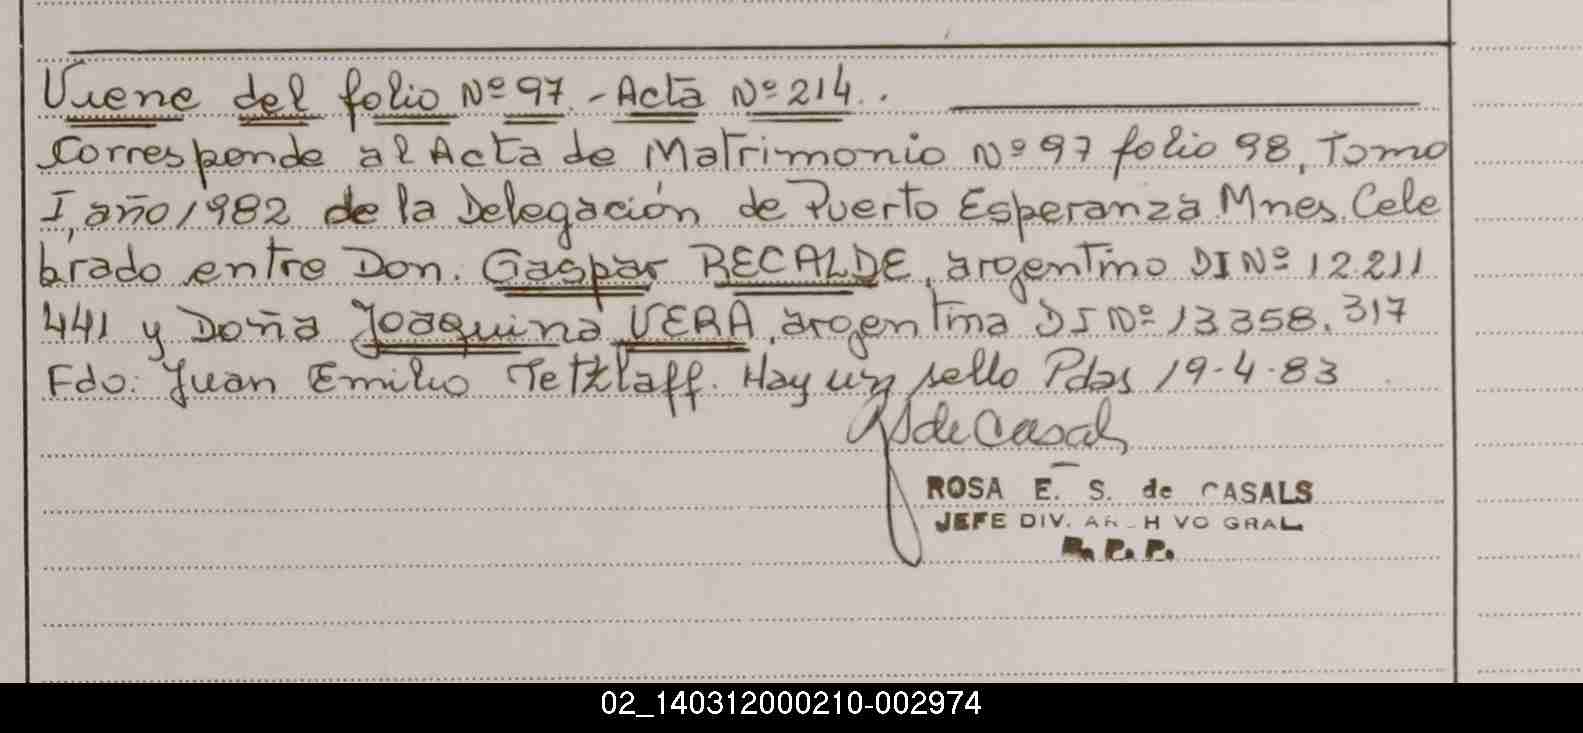 Viene del folio Nº 97. - Acta Nº 214..
Corresponde al Acta de Matrimonio Nº 97 folio 98, Tomo
I, año 1982 de la Delegación de Puerto Esperanza Mnes. Cele
brado entre Don. Gaspar RECALDE, argentino DI Nº 12.211
441 y Doña Joaquina VERA, argentina DI Nº 13.358.317
Fdo: Juan Emilio Tetzlaff. Hay un sello Pdas 19-4-83
RSdeCasals
ROSA E. S. de CASALS
JEFE DIV. ARCHIVO GRAL
R. P. P.
02_140312000210-002974